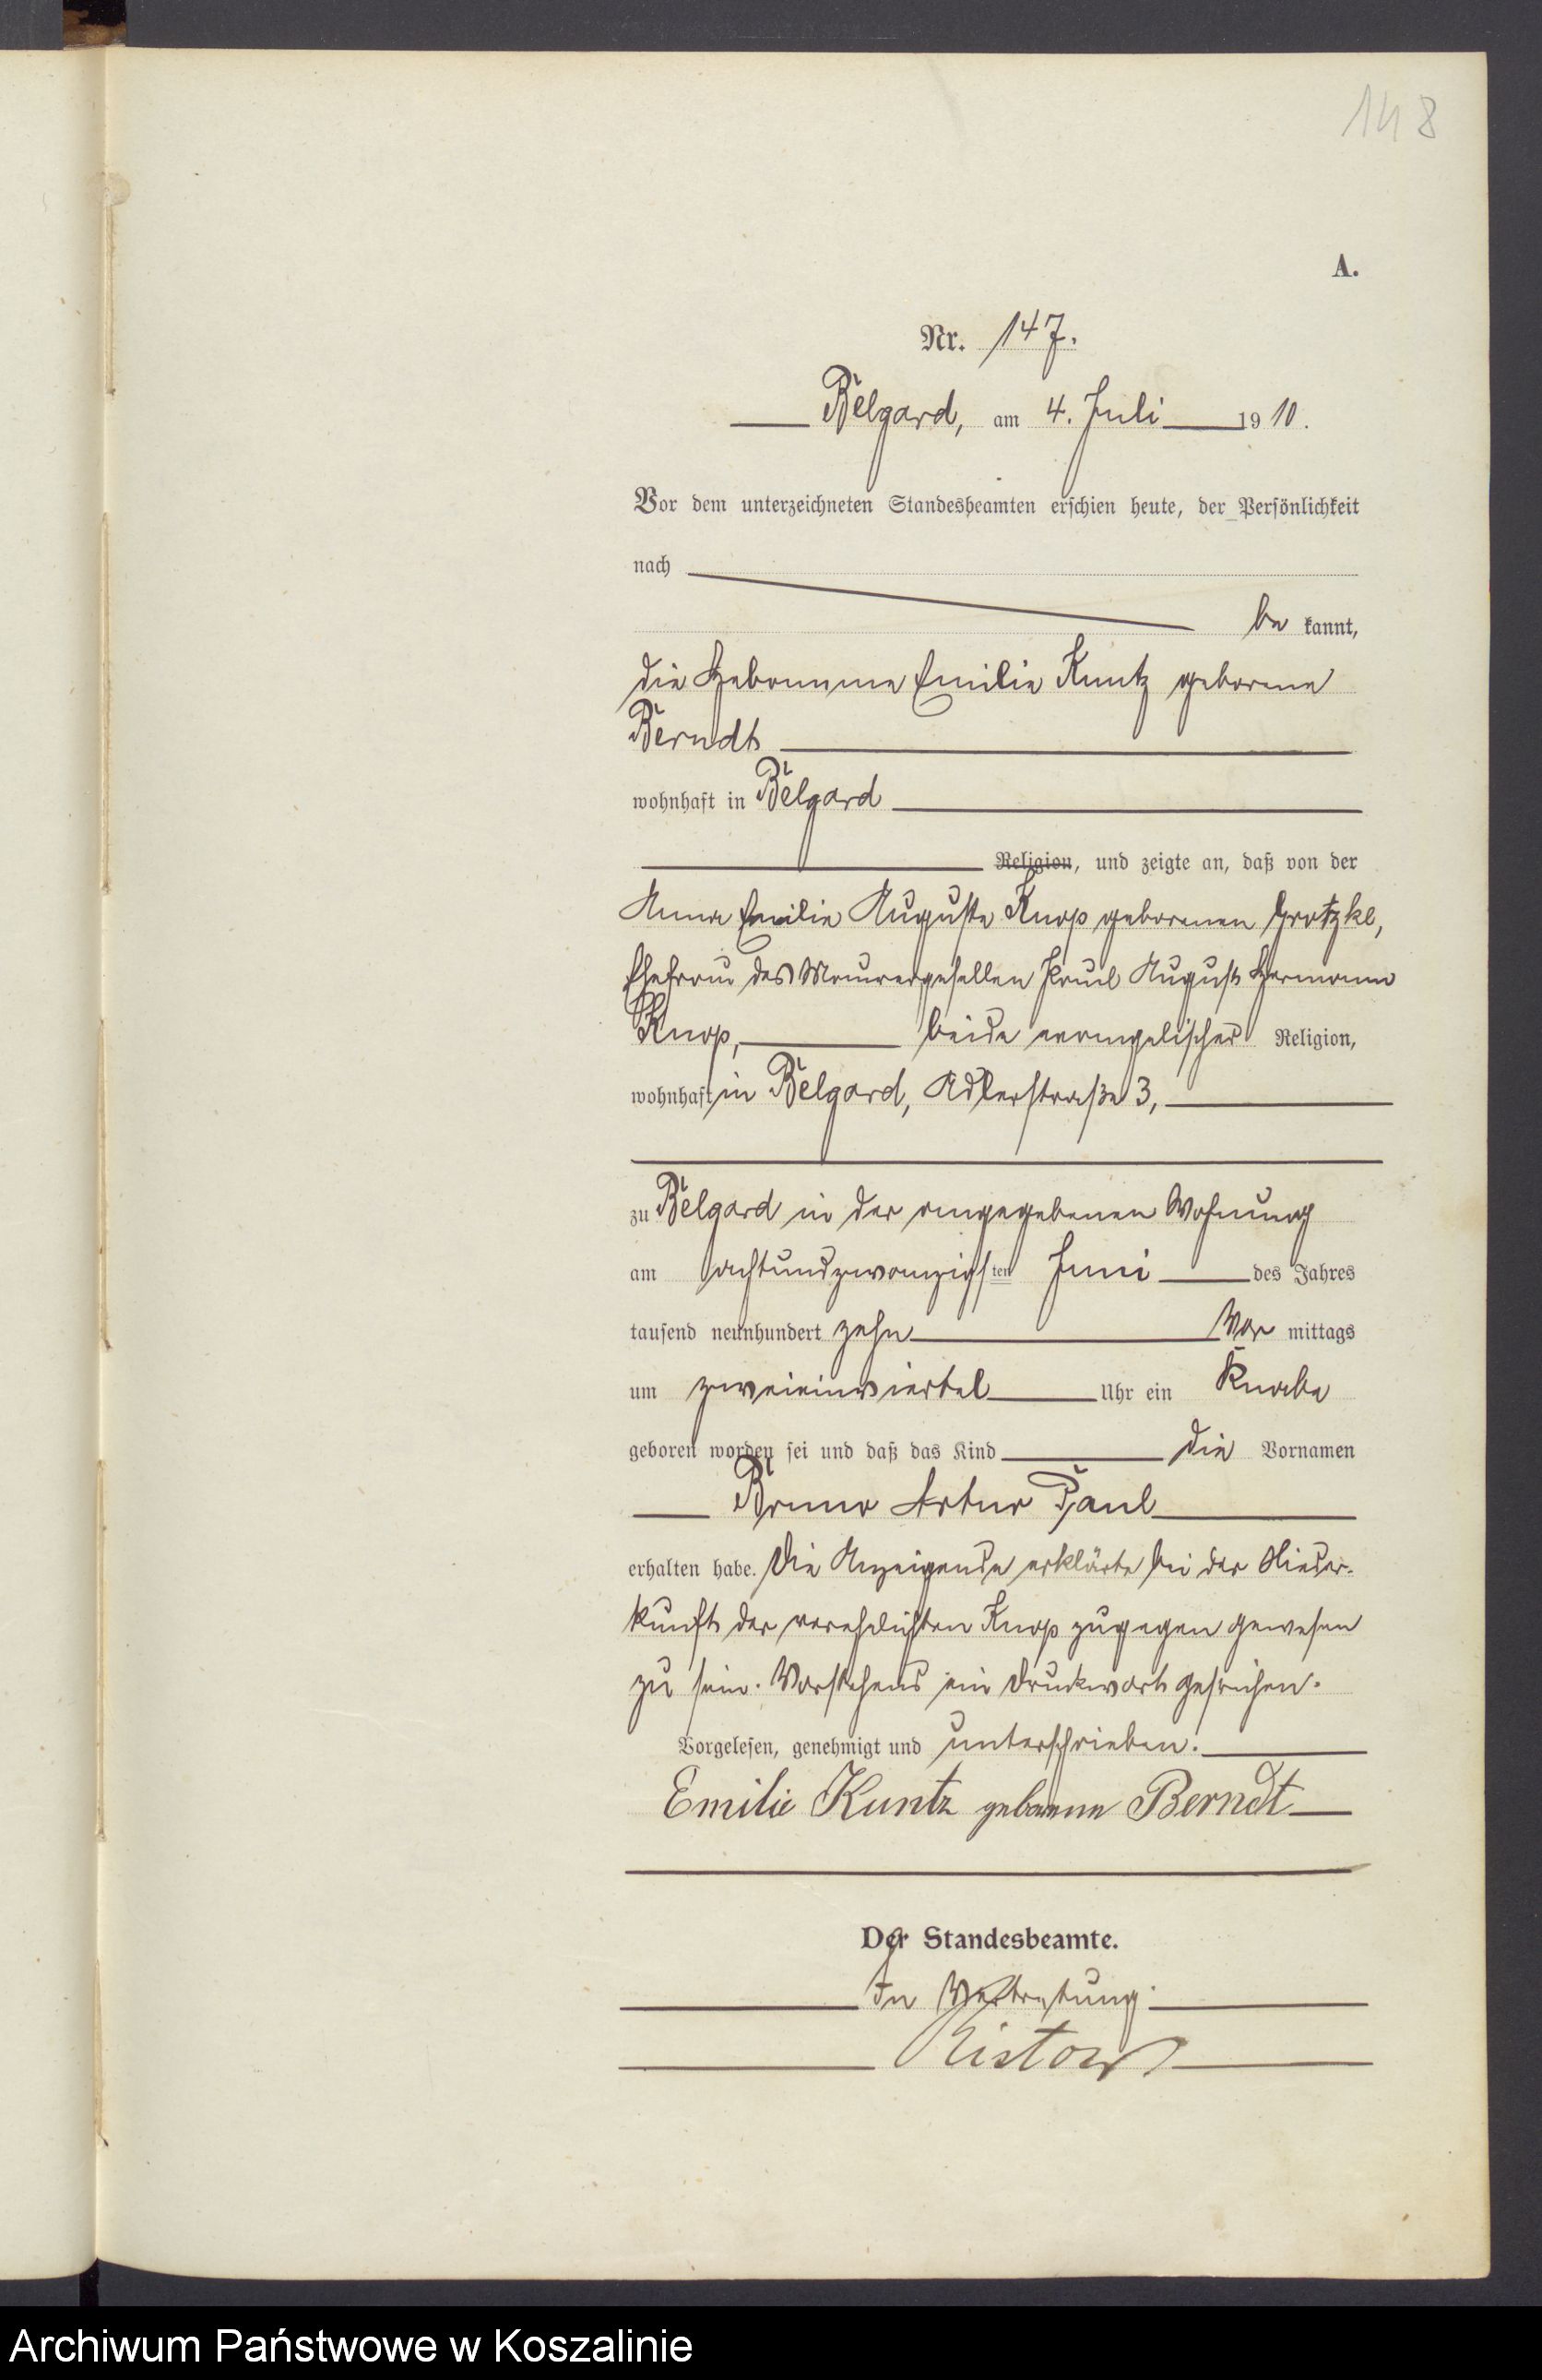 148
A.
Nr. 147.
Belgard, am 4. Juli 1910.
Vor dem unterzeichneten Standesbeamten erschien heute, der Persönlichkeit
nach
be kannt,
die Hebamme Emilie Kuntz geborene
Berndt
wohnhaft in Belgard
Religion, und zeigte an, daß von der
Anna Emilie Auguste Knop geborenen Grotzke,
Ehefrau des Maurergesellen Paul August Hermann
Knop, beide evangelischer Religion,
wohnhaft in Belgard, Adlerstraße 3,
zu Belgard in der angegebenen Wohnung
am achtundzwanzigsten Juni des Jahres
tausend neunhundert zehn Vor mittags
um zweieinviertel Uhr ein Knabe
geboren worden sei und daß das Kind die Vornamen
Bruno Artur Paul
erhalten habe. Die Anzeigende erklärte bei der Nieder-
kunft der verehelichten Knop zugegen gewesen
zu sein. Vorstehend ein Druckwort gestrichen.
Vorgelesen, genehmigt und unterschrieben.
Emilie Kuntz geborene Berndt
Der Standesbeamte.
In Vertretung.
Ristow
Archiwum Państwowe w Koszalinie